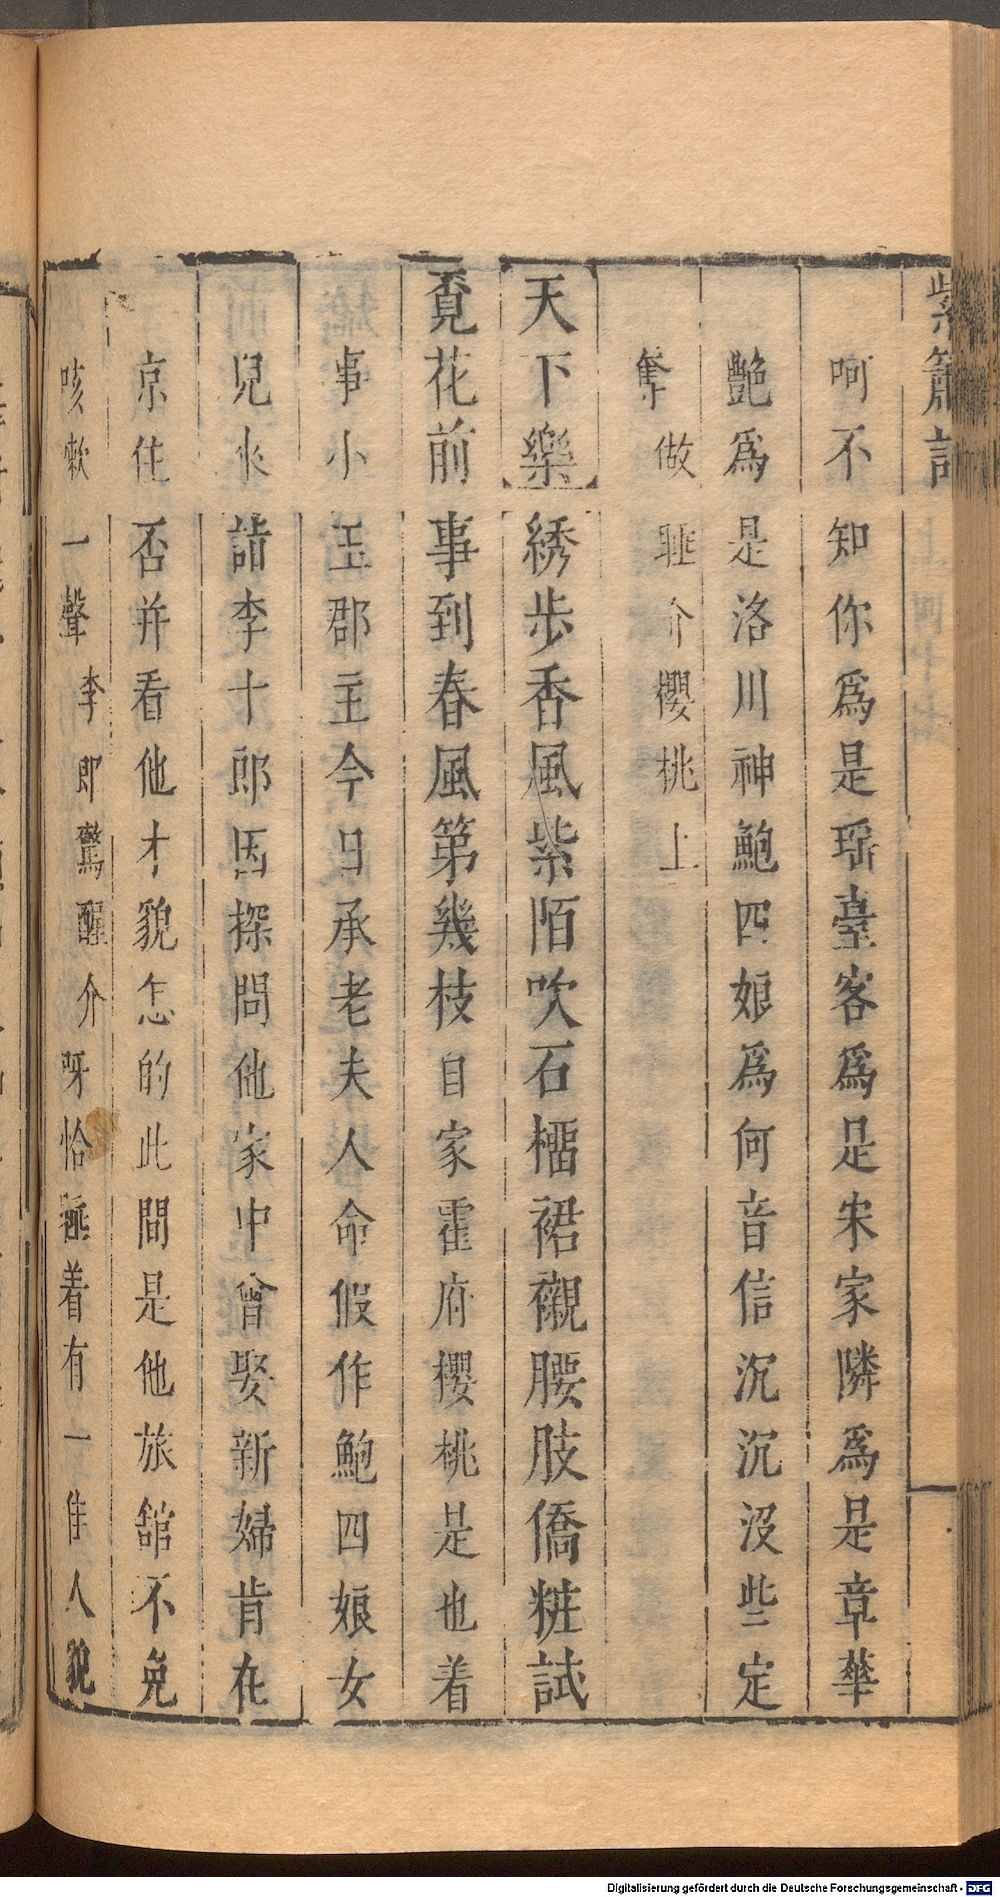 紫簫記
呵不知你爲是瑶臺客爲是宋家隣爲是章華
艷爲是洛川神鮑四娘爲何音信沉沉没些定
奪做睡介櫻桃上
天下樂綉步香風紫陌吹石榴裙襯腰肢僑粧試
覔花前事到春風第幾枝自家霍府櫻桃是也着
事小玉郡主今日承老夫人命假作鮑四娘女
兒来請李十郎因探問他家中曾娶新婦肯在
京住否并看他才貌怎的此間是他旅舘不免
咳嗽一聲李郎驚醒介呀恰睡着有一佳人貌
Digitalisierung gefördert durch die Deutsche Forschungsgemeinschaft - DFG